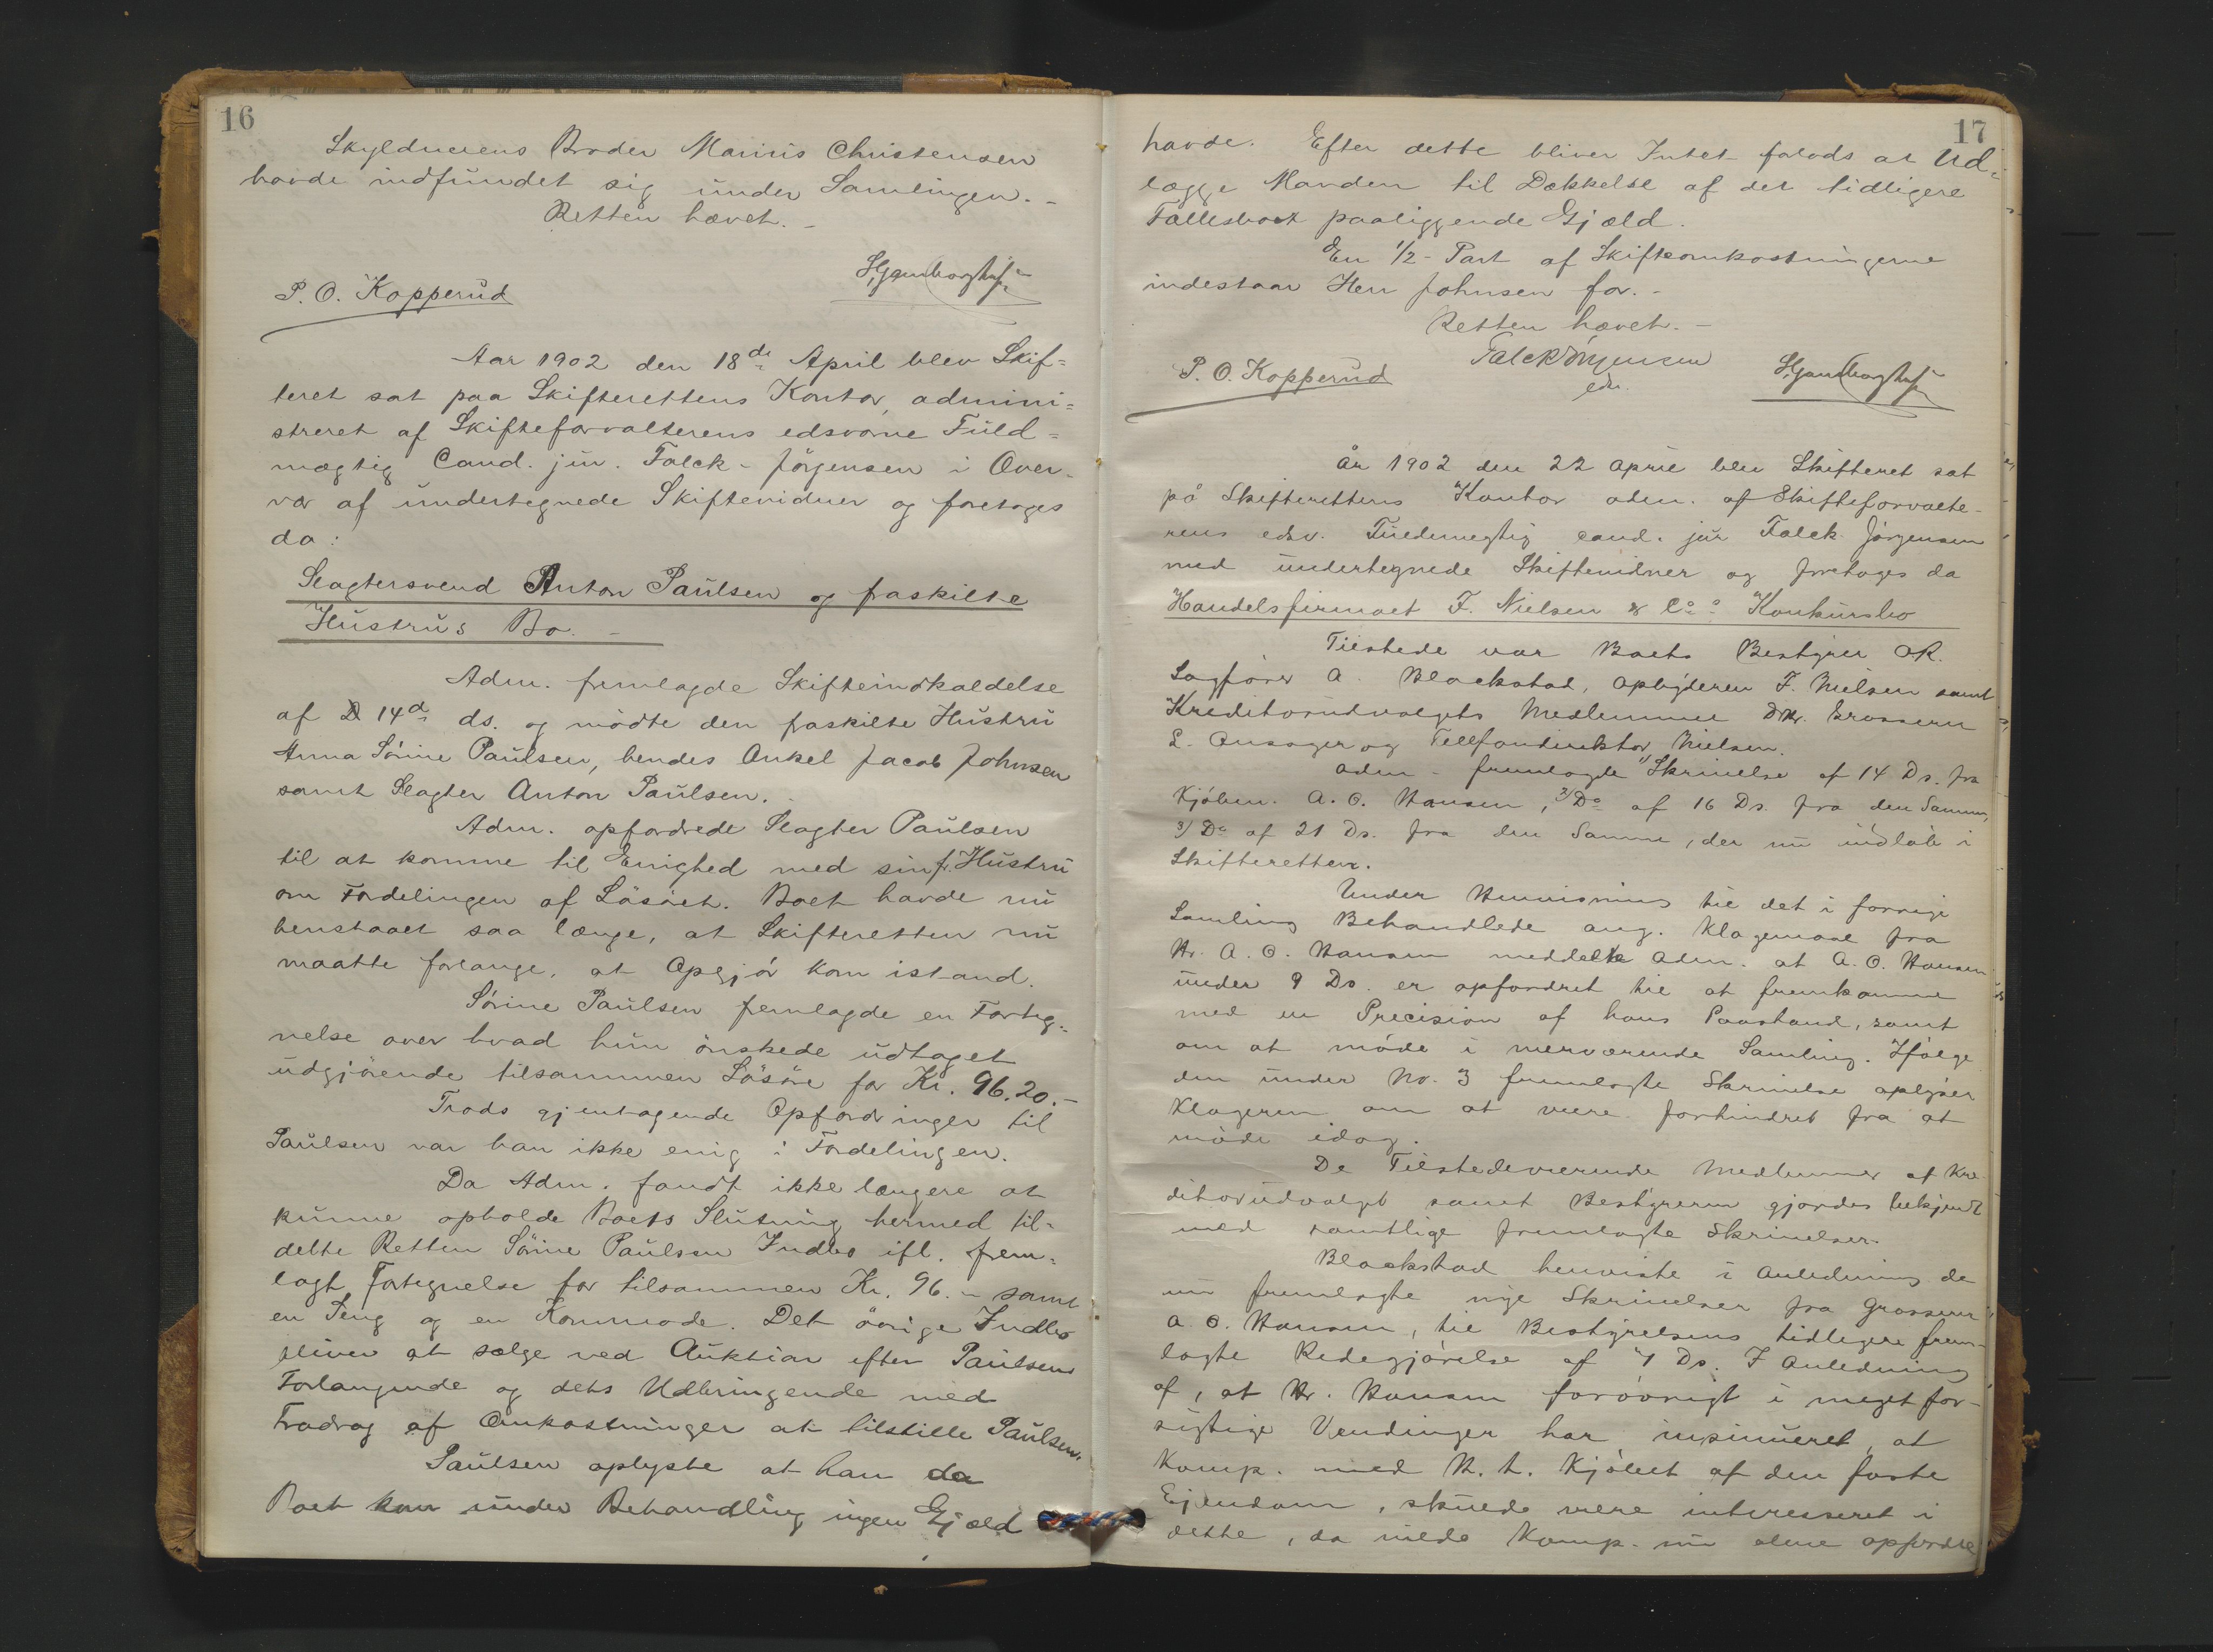 16
Skyldnerens Broder Marius Christensen
havde indfundet sig under Samlingen. -
Retten hævet. -
P. O. Kopperud
Aar 1902 den 18de April blev Skif=
teret sat paa Skifterettens Kontor, admini=
streret af Skifteforvalterens edsvorne Fuld=
mægtig Cand. jur. Falck-Jörgensen i Over-
vær af undertegnede Skiftevidner og foretoges
da:
Slagtersvend Anton Paulsen og fraskilte
Hustrus Bo. -
Adm. fremlagde Skifteindkaldelse
af 14de ds. og mödte den fraskilte Hustru
Anna Sörine Paulsen, hendes Onkel Jacob Johnsen
samt Slagter Anton Paulsen.
Adm. opfordrede Slagter Paulsen
til at komme til Enighed med sin f. Hustru
om Fordelingen af Lösöret. Boet havde nu
henstaaet saa længe, at Skifteretten nu
maatte forlange, at Opgjör kom istand.
Sörine Paulsen fremlagde en Forteg=
nelse over hvad hun önskede udtaget
udgjörende tilsammen Lösöre for Kr. 96.20.-
Trods gjentagende Opfordringer til
Paulsen var han ikke enig i Fordelingen.
Da Adm. fandt ikke længere at
kunne opholde Boets Slutning hermed til=
delte Retten Sörine Paulsen Indbo ifl. frem=
lagt Fortegnelse for tilsammen Kr. 96.- samt
en Seng og en Kommode. Det övrige Indbo
bliver at sælge ved Auktion efter Paulsens
Forlangende og dets Udbringende med
Fradrag af Omkostninger at tilstille Paulsen.
Paulsen oplyste at han da
Boet kom under Behandling ingen Gjæld
17
havde. Efter dette bliver Intet forlods at Ud=
lægge Manden til Dækkelse af det tidligere
Fællesboet paaliggende Gjæld.
En 1/2-Part af Skifteomkostningerne
indestaar Herr Johnsen for. -
Retten hævet. -
P. O. Kopperud
Falck Jörgensen
edsv.
År 1902 den 22 April blev Skifteret sat
på Skifterettens Kontor adm. af Skifteforvalte-
rens edsv. Fuldmegtig cand. jur Falck Jörgensen
med undertegnede Skiftevidner og foretoges da
Handelsfirmaet F. Nielsen & Co.s Konkursbo
Tilstede var Boets Bestyrer OR.
Sagförer A. Blackstad, Opbyderen F. Nielsen samt
Kreditorudvalgets Medlemmer DHr. Grosserer
L. Onsager og Telefondirektör Nielsen.
Adm. fremlagde 1/ Skrivelse af 14 Ds. fra
Kjöbm. A. O. Hansen, 2/ Do af 16 Ds. fra den Samme,
3/ Do af 21 Ds. fra den Samme, der nu indlöb i
Skifteretten.
Under Henvisning til det i forrige
Samling Behandlede ang. Klagemaal fra
Hr. A. O. Hansen meddelte Adm. at A. O. Hansen
under 9 Ds. er opfordret til at fremkomme
med en Precision af hans Paastand, samt
om at möde i nerværende Samling. Ifölge
den under No. 3 fremlagte Skrivelse oplyser
Klageren om at være forhindret fra at
möde idag.
De Tilstedeværende Medlemmer af Kre-
ditorudvalget samt Bestyreren gjordes bekjendt
med samtlige fremlagte Skrivelser.
Blackstad henviste i Anledning de
nu fremlagte nye Skrivelser fra Grosserer
A. O. Hansen, til Bestyrelsens tidligere frem-
lagte Redegjörelse af 1 Ds. I Anledning
af, at Hr. Hansen forövrigt i meget for-
sigtige Vendinger har insinueret, at
Komp. med H. t. Kjöbet af den faste
Ejendom, skulde være interesseret i
dette, da vilde Komp. nu alene opfordre